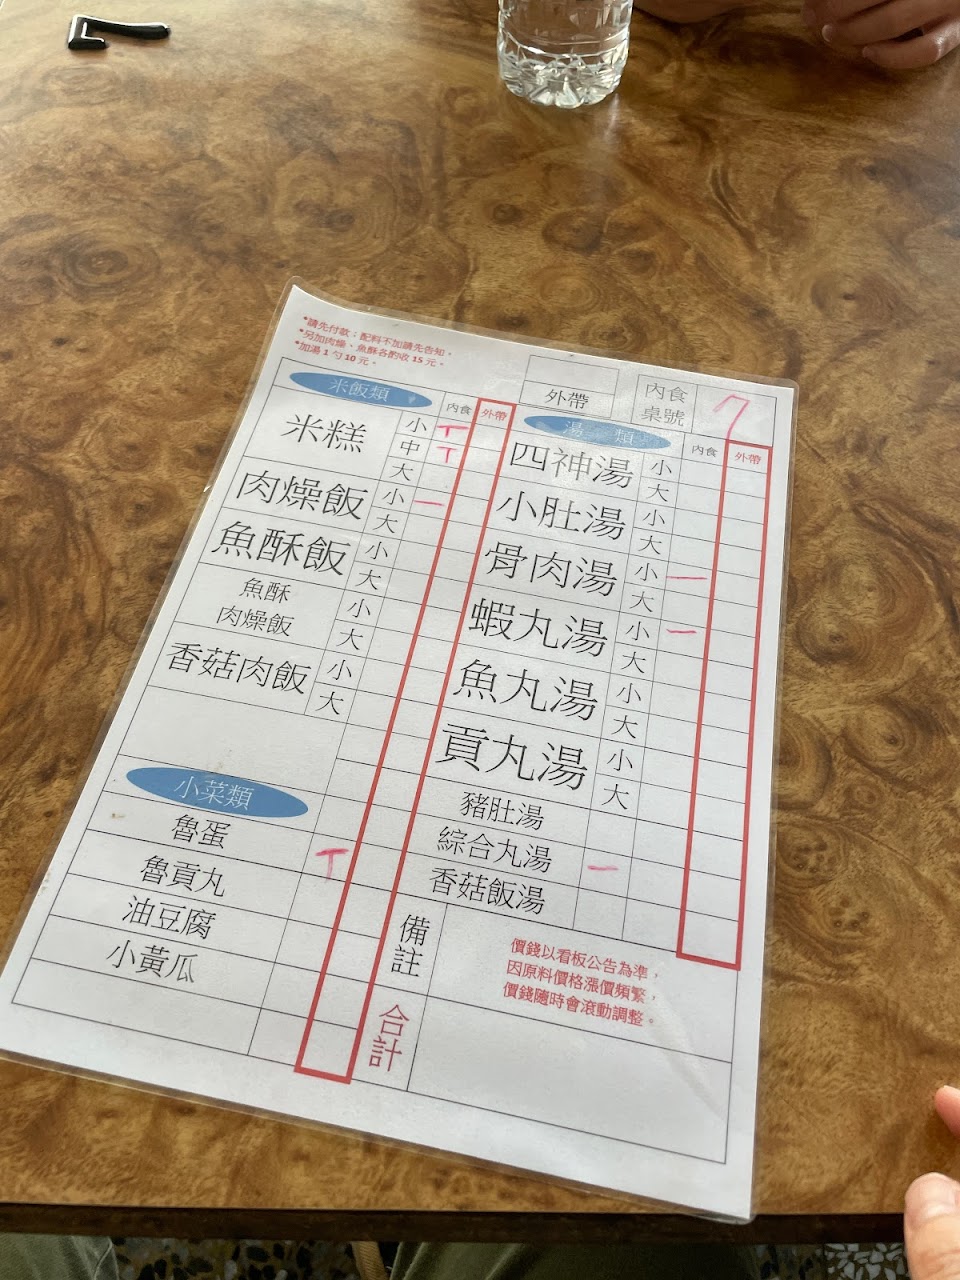 *請先付款；配料不加請先告知。
*另加肉燥、魚酥各酌收 15 元。
*加湯 1 勺 10 元。
外帶
內食
桌號
7
米飯類
內食
外帶
米糕
小
T
中
T
大
肉燥飯
小
一
大
魚酥飯
小
大
魚酥
肉燥飯
小
大
香菇肉飯
小
大
小菜類
魯蛋
T
魯貢丸
油豆腐
小黃瓜
湯 類
內食
外帶
四神湯
小
大
小肚湯
小
大
骨肉湯
小
一
大
蝦丸湯
小
一
大
魚丸湯
小
大
貢丸湯
小
大
豬肚湯
綜合丸湯
一
香菇飯湯
備註
價錢以看板公告為準，
因原料價格漲價頻繁，
價錢隨時會滾動調整。
合計